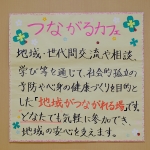 つながるカフェ
地域・世代間交流や相談、
学び等を通じて、社会的孤立の
予防や心身の健康づくりを目的と
した"地域がつながれる場"です。
どなたでも気軽に参加でき、
地域の安心を支えます。